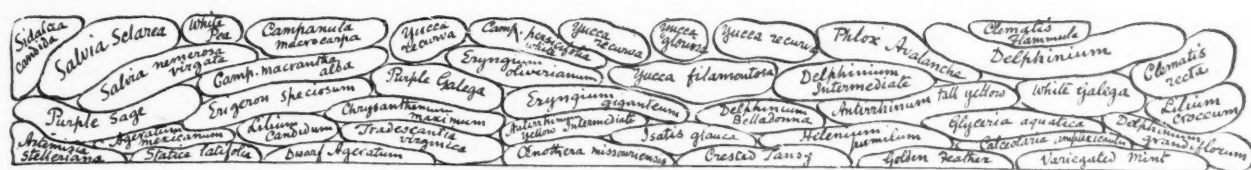 Sidalcea
candida
Salvia Sclarea
White
Pea
Campanula
macrocarpa
Yucca
recurva
Camp. persicifolia
white
Yucca
recurva
Yucca
gloriosa
Yucca recurva
Phlox Avalanche
Clematis
Flammula
Delphinium
Clematis
recta
Salvia nemerosa
virgata
Camp. macrantha
alba
Purple Galega
Eryngium
oliverianum
Yucca filamentosa
Delphinium
Intermediate
Purple Sage
Erigeron speciosum
Chrysanthemum
maximum
Eryngium
giganteum
Delphinium
Belladonna
Antirrhinum tall yellow
White Galega
Lilium
Croceum
Artemisia
stelleriana
Ageratum
mexicanum
Lilium
Candidum
Tradescantia
virginica
Antirrhinum
Yellow Intermediate
Isatis glauca
Helenium
pumilum
Glyceria aquatica
Calceolaria
Delphinium
grandiflorum
Statice latifolia
Dwarf Ageratum
Œnothera missouriensis
Crested Tansy
Golden Feather
Variegated Mint